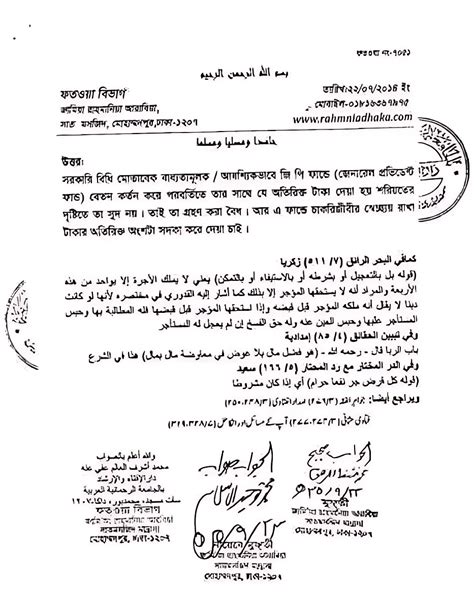 ফতওয়া নং-৭০৫১
بسم الله الرحمن الرحيم
ফতওয়া বিভাগ
জামিয়া রাহমানিয়া আরাবিয়া,
সাত মসজিদ, মোহাম্মদপুর,ঢাকা-১২০৭
তারিখ:২২/০৭/২০১৪ ইং
মোবাইল-
www.rahmniadhaka.com
حامدا ومصليا ومسلما
উত্তর:
সরকারি বিধি মোতাবেক বাধ্যতামূলক / আংশিকভাবে জি পি ফান্ডে (জেনারেল প্রভিডেন্ট
ফান্ড) বেতন কর্তন করে পরবর্তিতে তার সাথে যে অতিরিক্ত টাকা দেয়া হয় শরিয়তের
দৃষ্টিতে তা সুদ নয়। তাই তা গ্রহণ করা বৈধ। আর এ ফান্ডে চাকরিজীবীর স্বেচ্ছায় রাখা
টাকার অতিরিক্ত অংশটা সদকা করে দেয়া চাই।
كمافي البحر الرائق (٧/ ٥١١) زكريا
(قوله بل بالتعجيل أو بشرطه أو بالاستيفاء أو بالتمكن) يعني لا يملك الأجرة إلا بواحد من هذه
الأربعة والمراد أنه لا يستحقها المؤجر إلا بذلك كما أشار إليه القدوري في مختصره لأنها لو كانت
دينا لا يقال أنه ملكه المؤجر قبل قبضه وإذا استحقها المؤجر قبل قبضها فله المطالبة بها وحبس
المستأجر عليها وحبس العين عنه وله حق الفسخ إن لم يعجل له المستأجر
وفي تبيين الحقائق (٤/ ٨٥) إمدادية
باب الربا قال - رحمه الله - (هو فضل مال بلا عوض في معاوضة مال بمال) هذا في الشرع
وفي الدر المختار مع رد المحتار (٥/ ١٦٦) سعيد
(قوله كل قرض جر نفعا حرام) أي إذا كان مشروطا
ويراجع أيضا:
الجواب صحيح
الجواب صواب
والله أعلم بالصواب
محمد أشرف العالم عفي عنه
دار الإفتاء والإرشاد
بالجامعة الرحمانية العربية
سات مسجد، محمدبور، داكا-١٢٠٧
ফতওয়া বিভাগ
জামিয়া রাহমানিয়া আরাবিয়া
সাতমসজিদ মাদ্রাসা
মোহাম্মদপুর, ঢাকা-১২০৭
জামিয়া রাহমানিয়া আরাবিয়া
সাতমসজিদ মাদ্রাসা
মোহাম্মদপুর, ঢাকা-১২০৭
মুফতী
জামিয়া রাহমানিয়া আরাবিয়া
সাতমসজিদ মাদ্রাসা
মোহাম্মদপুর, ঢাকা-১২০৭